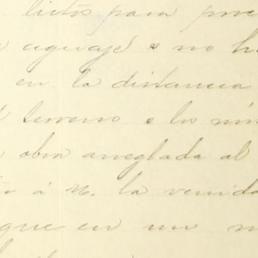 listos para pro
aguaje o no h
en la distancia
terreno o los min
obra arreglada al
á N. la venida
que en un m